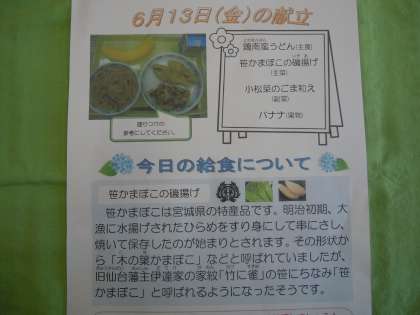 6月13日(金)の献立
鶏南蛮うどん(主食)
笹かまぼこの磯揚げ
(主菜)
小松菜のごま和え
(副菜)
バナナ(果物)
盛りつけの
参考にしてください。
今日の給食について
笹かまぼこの磯揚げ
笹かまぼこは宮城県の特産品です。明治初期、大
漁に水揚げされたひらめをすり身にして串にさし、
焼いて保存したのが始まりとされます。その形状か
ら「木の葉かまぼこ」などと呼ばれていましたが、
旧仙台藩主伊達家の家紋「竹に雀」の笹にちなみ「笹
かまぼこ」と呼ばれるようになったそうです。